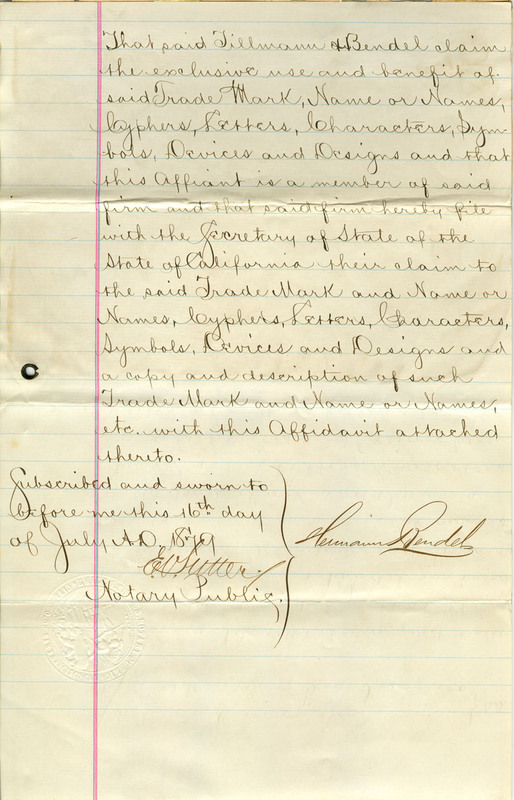 That said Tillmann & Bendel claim
the exclusive use and benefit of
said Trade Mark, Name or Names,
Cyphers, Letters, Characters, Sym-
bols, Devices and Designs and that
this Affiant is a member of said
firm and that said firm hereby file
with the Secretary of State of the
State of California their claim to
the said Trade Mark and Name or
Names, Cyphers, Letters, Characters,
Symbols, Devices and Designs and
a copy and description of such
Trade Mark and Name or Names,
etc. with this Affidavit attached
thereto.
Subscribed and sworn to
before me this 16th day
of July A.D. 1879
Hermann Bendel
Notary Public.